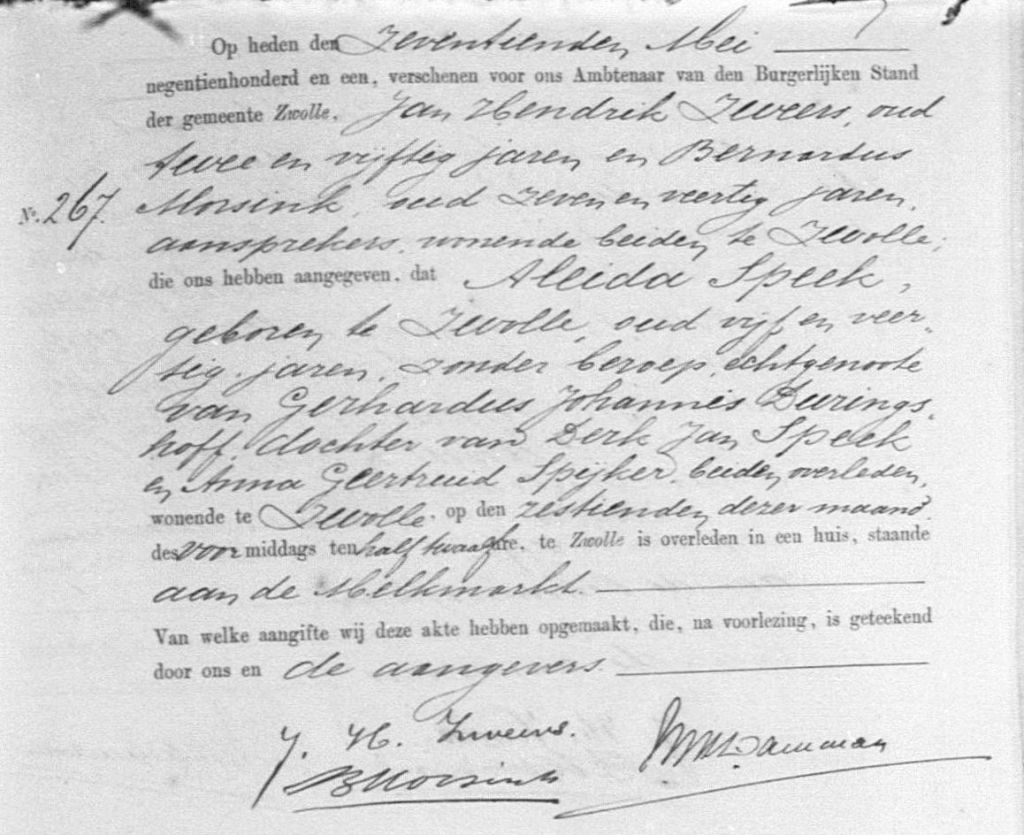 Op heden den Zeventienden Mei
negentienhonderd en een, verschenen voor ons Ambtenaar van den Burgerlijken Stand
der gemeente Zwolle, Jan Hendrik Zweers, oud
twee en vijftig jaren en Bernardus
No. 267. Morsink, oud zeven en veertig jaren,
aansprekers, wonende beiden te Zwolle,
die ons hebben aangegeven, dat Aleida Speek,
geboren te Zwolle, oud vijf en veer-
tig jaren, zonder beroep, echtgenoote
van Gerhardus Johannes Durings-
hoff, dochter van Derk Jan Speek
en Anna Geertruid Spijker, beiden overleden,
wonende te Zwolle, op den zestienden dezer maand
des voormiddags ten half twaalf ure, te Zwolle is overleden in een huis, staande
aan de Melkmarkt.
Van welke aangifte wij deze akte hebben opgemaakt, die, na voorlezing, is geteekend
door ons en de aangevers
J. H. Zweers.
BMorsink